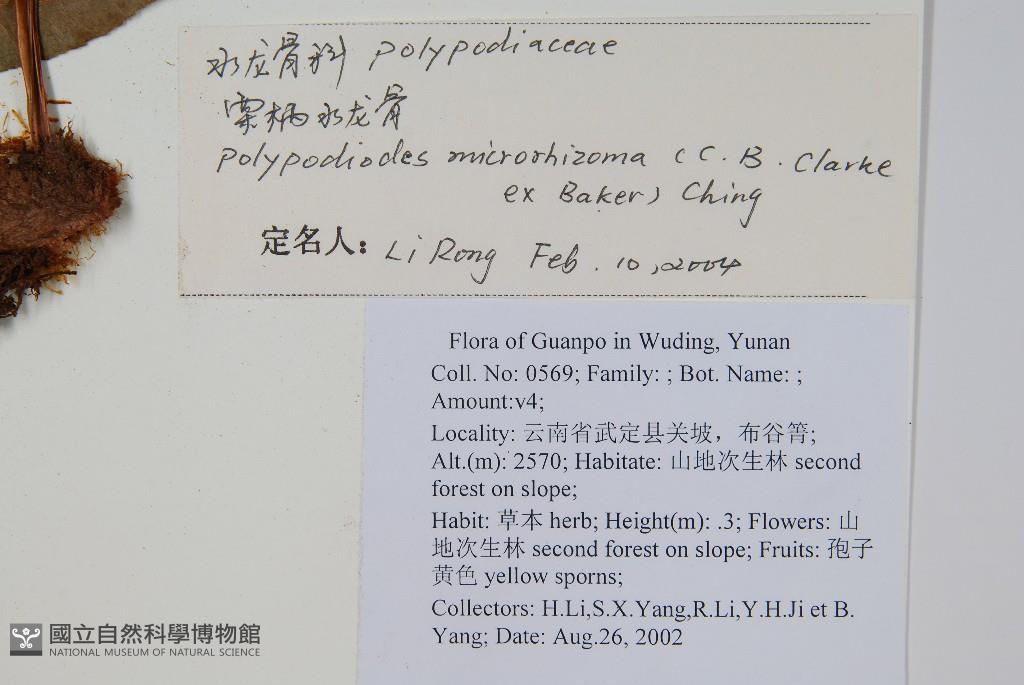 水龙骨科 polypodiaceae
栗柄水龙骨
polypodiodes microrhizoma (C.B. Clarke
ex Baker) Ching
定名人: Li Rong Feb. 10, 2004
Flora of Guanpo in Wuding, Yunan
Coll. No: 0569; Family: ; Bot. Name: ;
Amount:v4;
Locality: 云南省武定县关坡，布谷箐;
Alt.(m): 2570; Habitate: 山地次生林 second
forest on slope;
Habit: 草本 herb; Height(m): .3; Flowers: 山
地次生林 second forest on slope; Fruits: 孢子
黄色 yellow sporns;
Collectors: H.Li,S.X.Yang,R.Li,Y.H.Ji et B.
Yang; Date: Aug.26, 2002
國立自然科學博物館
NATIONAL MUSEUM OF NATURAL SCIENCE